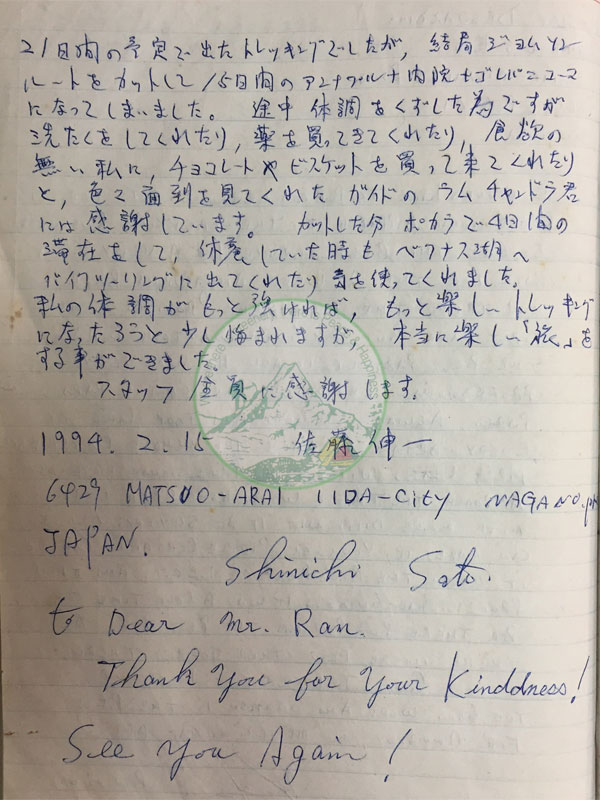 21日間の予定で出たトレッキングでしたが，結局ジョムソン
ルートをカットして15日間のアンナプルナ内院+ゴレパニコース
になってしまいました。 途中体調をくずした為ですが
洗たくをしてくれたり，薬を買ってきてくれたり，食欲の
無い私に，チョコレートやビスケットを買って来てくれたり
と，色々面到を見てくれたガイドのラムチャンドラ君
には感謝しています。 カットした分ポカラで4日間の
滞在をして，休養していた時もベグナス湖へ
バイクツーリングに出てくれたり気を使ってくれました。
私の体調がもっと強ければ，もっと楽しいトレッキング
になったろうと少し悔まれますが，本当に楽しい「旅」を
する事ができました。
スタッフ全員に感謝します。
1994. 2. 15 佐藤伸一
6429 MATSUO-ARAI IIDA-City NAGANO
JAPAN.
Shinichi Sato.
to Dear Mr. Ram.
Thank You for Your Kinddness!
See You Again!